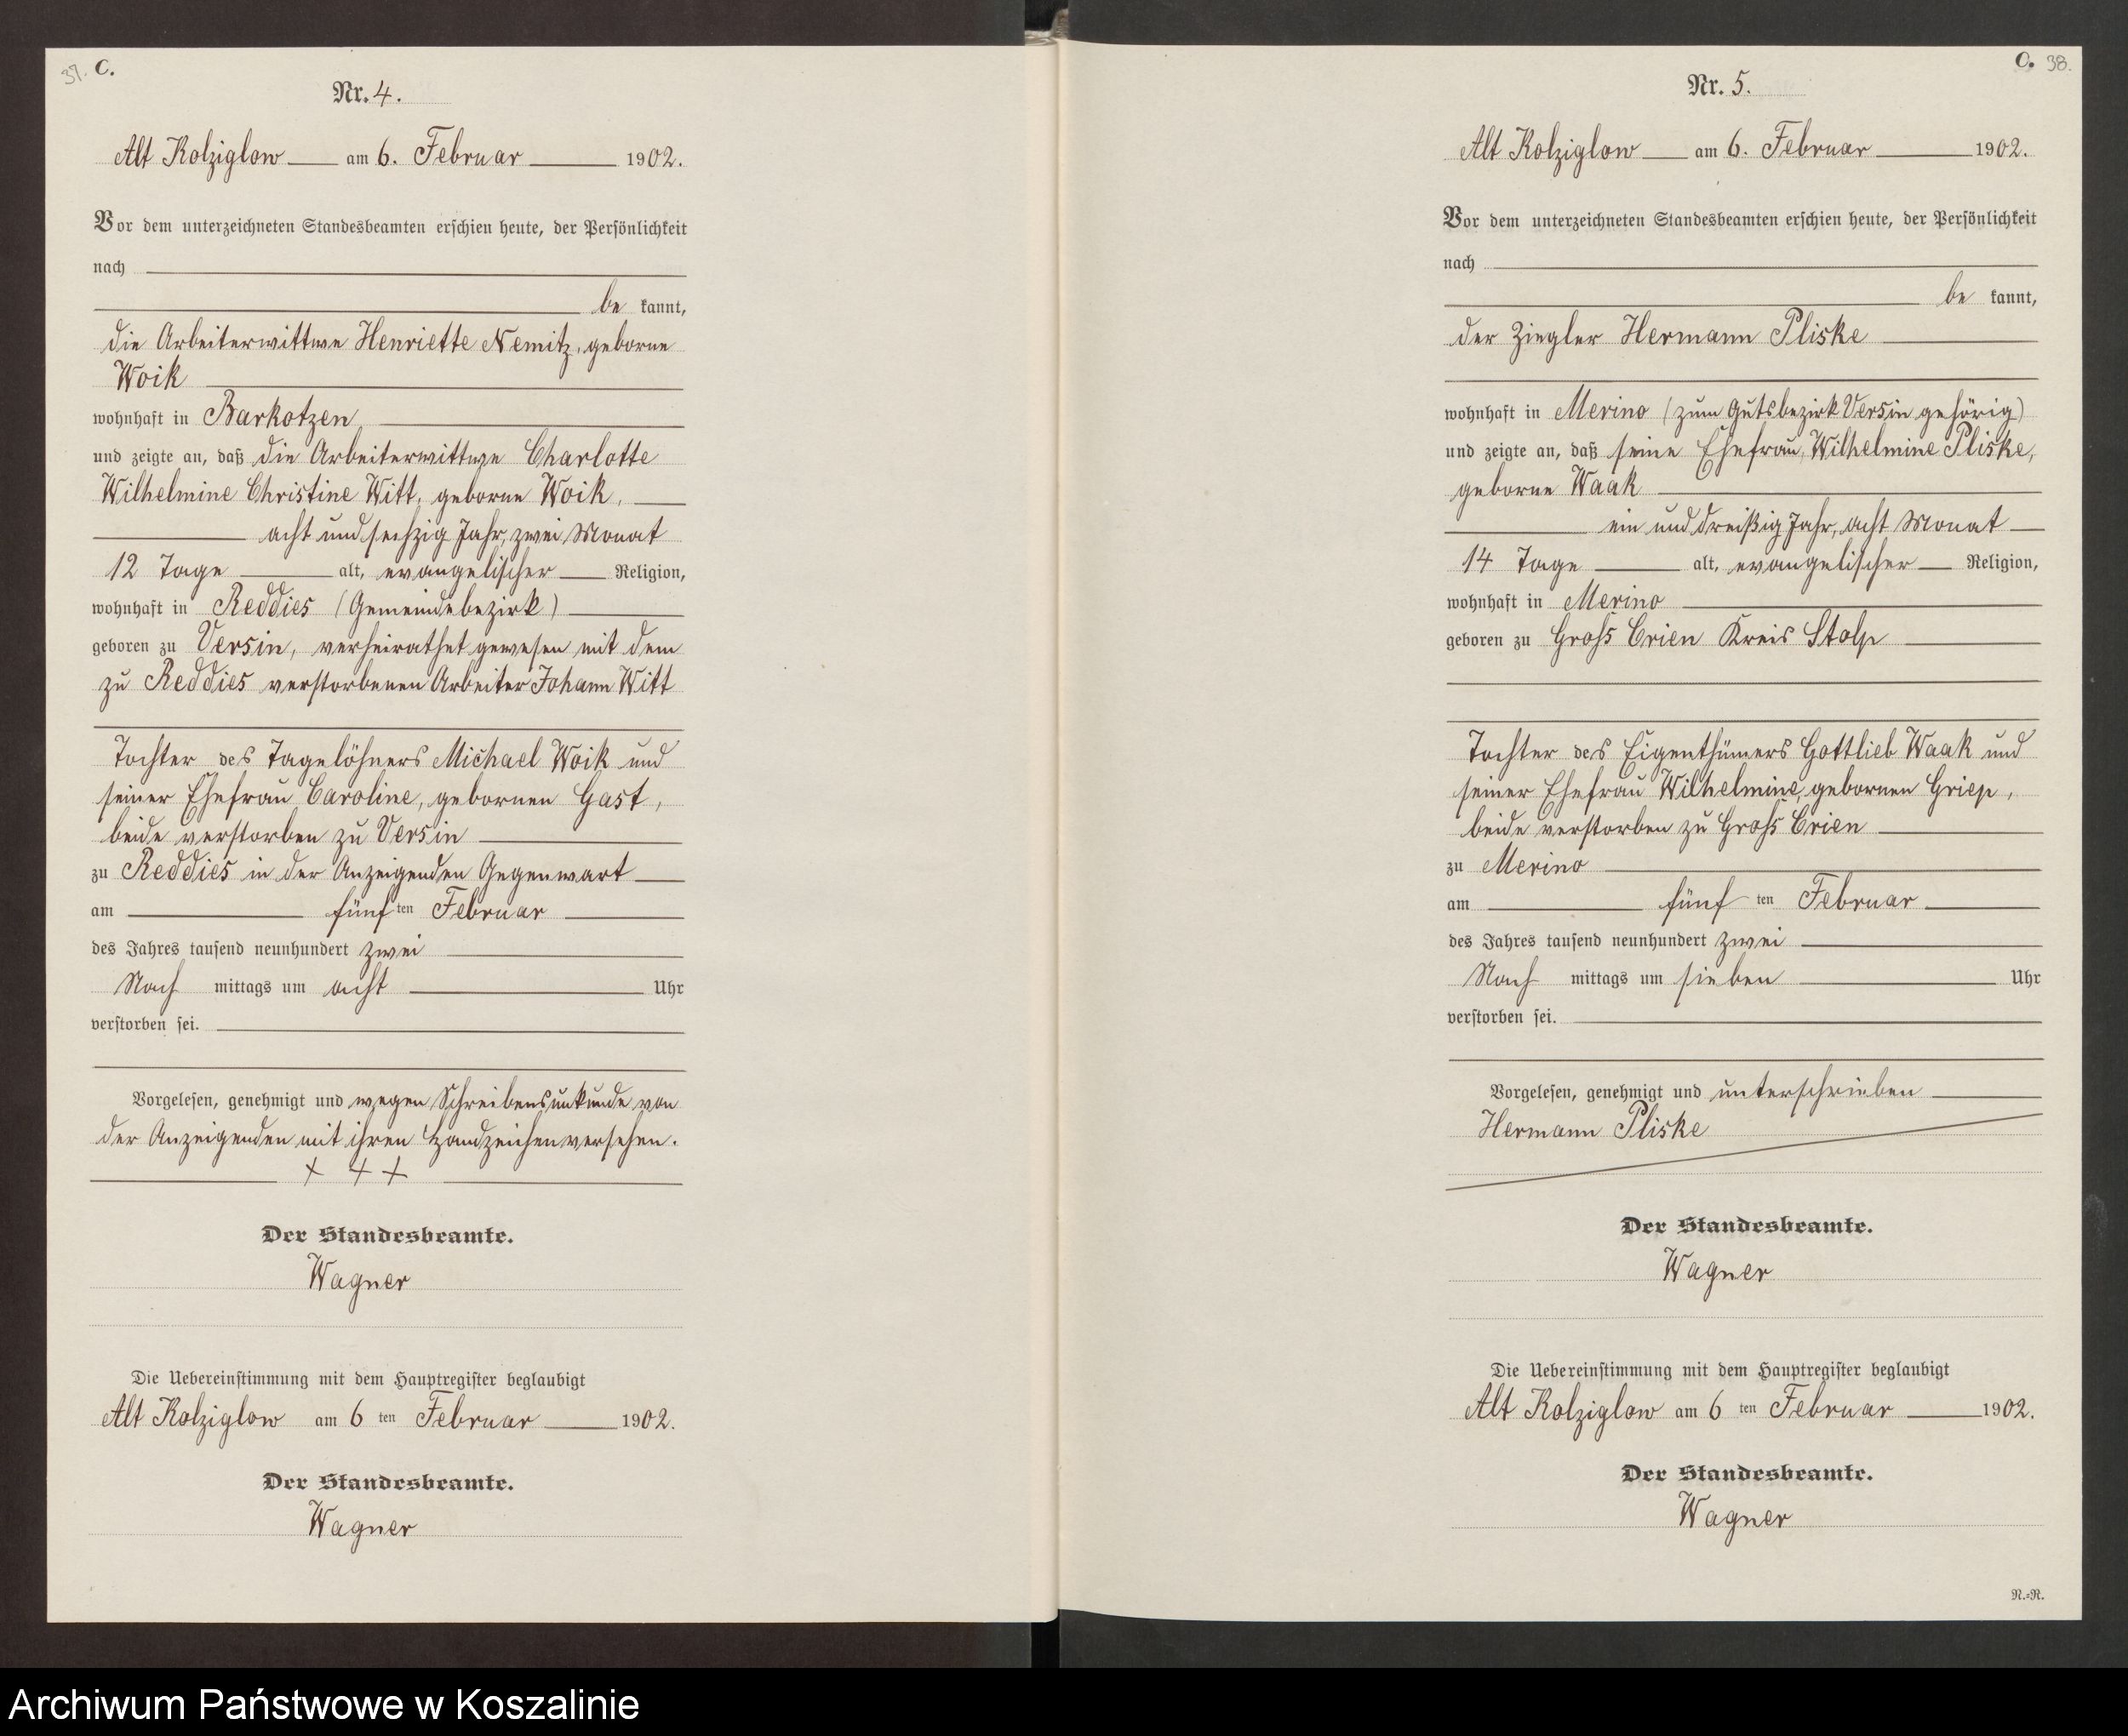 37. C.
Nr. 4.
Alt Kolziglow am 6. Februar 1902.
Vor dem unterzeichneten Standesbeamten erschien heute, der Persönlichkeit
nach
be kannt,
die Arbeiterwittwe Henriette Nemitz, geborne
Woik
wohnhaft in Barkotzen
und zeigte an, daß die Arbeiterwittwe Charlotte
Wilhelmine Christine Witt, geborne Woik,
acht und sechzig Jahr, zwei Monat
12 Tage alt, evangelischer Religion,
wohnhaft in Reddies (Gemeindebezirk)
geboren zu Versin, verheirathet gewesen mit dem
zu Reddies verstorbenen Arbeiter Johann Witt
Tochter des Tagelöhners Michael Woik und
seiner Ehefrau Caroline, gebornen Gast,
beide verstorben zu Versin
zu Reddies in der Anzeigenden Gegenwart
am fünf ten Februar
des Jahres tausend neunhundert zwei
Nach mittags um acht Uhr
verstorben sei.
Vorgelesen, genehmigt und wegen Schreibensunkunde von
der Anzeigenden mit ihren Handzeichen versehen.
+ + +
Der Standesbeamte.
Wagner
Die Uebereinstimmung mit dem Hauptregister beglaubigt
Alt Kolziglow am 6 ten Februar 1902.
Der Standesbeamte.
Wagner
C. 38.
Nr. 5.
Alt Kolziglow am 6. Februar 1902.
Vor dem unterzeichneten Standesbeamten erschien heute, der Persönlichkeit
nach
be kannt,
der Ziegler Hermann Pliske
wohnhaft in Merino (zum Gutsbezirk Versin gehörig)
und zeigte an, daß seine Ehefrau, Wilhelmine Pliske,
geborne Waak
ein und dreißig Jahr, acht Monat
14 Tage alt, evangelischer Religion,
wohnhaft in Merino
geboren zu Groß Crien Kreis Stolp
Tochter des Eigenthümers Gottlieb Waak und
seiner Ehefrau Wilhelmine, gebornen Griep,
beide verstorben zu Groß Crien
zu Merino
am fünf ten Februar
des Jahres tausend neunhundert zwei
Nach mittags um sieben Uhr
verstorben sei.
Vorgelesen, genehmigt und unterschrieben
Hermann Pliske
Der Standesbeamte.
Wagner
Die Uebereinstimmung mit dem Hauptregister beglaubigt
Alt Kolziglow am 6 ten Februar 1902.
Der Standesbeamte.
Wagner
R.=R.
Archiwum Państwowe w Koszalinie